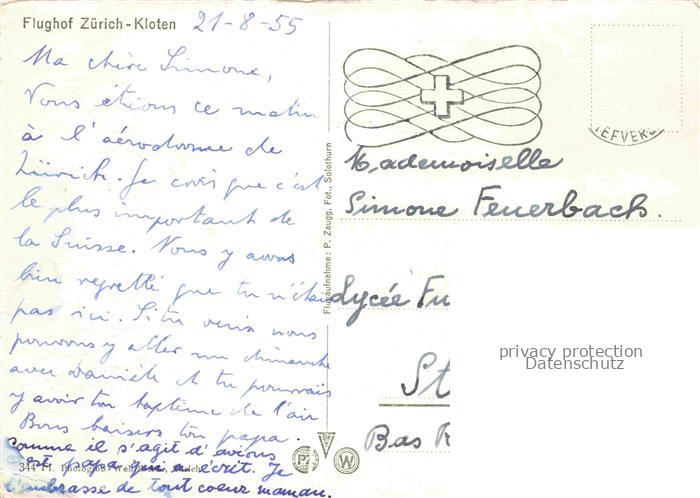 Flughof Zürich-Kloten 21-8-55
Ma chère Simone,
Nous étions ce matin
à l'aérodrome de
Zürich. Je crois que c'est
le plus important de
la Suisse. Nous y avons
bien regretté que tu n'étais
pas ici. Si tu veux nous
pouvons y aller un dimanche
avec Danièle et tu pourrais
y avoir ton baptême de l'air
Bons baisers ton papa.
comme il s'agit d'avions
c'est papa qui a écrit. Je
t'embrasse de tout coeur maman.
344 Ft.
Flugaufnahme: P. Zaugg, Fot., Solothurn
P
W
Mademoiselle
Simone Feuerbach.
Lycée Fu
St
Bas R
privacy protection
Datenschutz